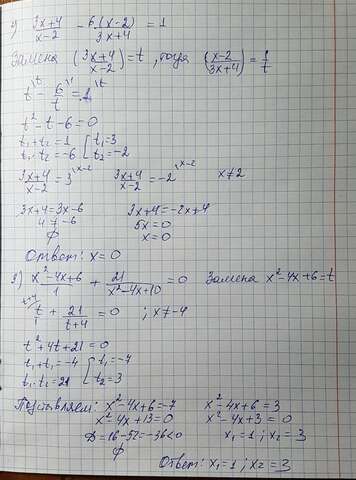 9) (3x+4)/(x-2) - 6(x-2)/(3x+4) = 1
Замена (3x+4)/(x-2) = t, тогда (x-2)/(3x+4) = 1/t
t^\t - 6/t^\1 = 1^\t
t² - t - 6 = 0
t₁+t₂ = 1 [ t₁=3
t₁·t₂ = -6 [ t₂=-2
(3x+4)/(x-2) = 3^\x-2 (3x+4)/(x-2) = -2^\x-2 x≠2
3x+4=3x-6 3x+4=-2x+4
4 ≠ -6 5x=0
∅ x=0
Ответ: x=0
(x²-4x+6)/1 + 21/(x²-4x+10) = 0 Замена x²-4x+6=t
t/1^\t+4 + 21/(t+4) = 0 ; x≠-4
t²+4t+21=0
t₁+t₂=-4 [ t₁=-7
t₁·t₂=21 [ t₂=3
Подставляем: x²-4x+6=-7 x²-4x+6=3
x²-4x+13=0 x²-4x+3=0
D=16-52=-36<0 x₁=1; x₂=3
∅
Ответ: x₁=1; x₂=3